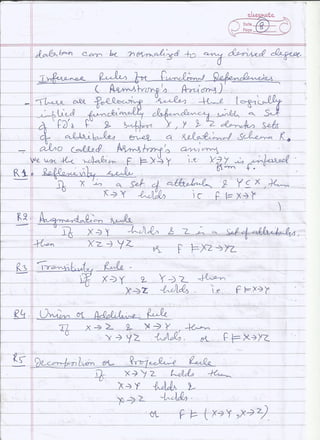 classmate
Date
Page 8
dataion can be normalized to any desired degree.
Inference Rules for Functional Dependencies
( Armstrong's Axioms)
- There are following rules that logically
implied functionally dependency with a Set
of FD's F & suppose X, Y, & Z denotes sets
of attributes over a relational schema R.
- also called Armstrong's axioms
we use the notation F ⊨ X→Y i.e X→Y is inferred
from F.
R1 - Reflexivity rule
If X is a set of attributes & Y ⊆ X, then
X→Y holds ie F ⊨ X→Y
R2 Augmentation rule
If X→Y holds & Z is a set of attributes,
then XZ → YZ or F ⊨ XZ→YZ
R3 Transitivity Rule.
If X→Y & Y→Z then
X→Z holds i.e F⊨X→Y
R4 Union or Additive Rule
If X→Z & X→Y then
X→YZ holds. or F⊨X→YZ
R5 Decomposition or Projective Rule
If X→YZ holds then
X→Y holds &
X→Z holds.
or F ⊨ (X→Y, X→Z)